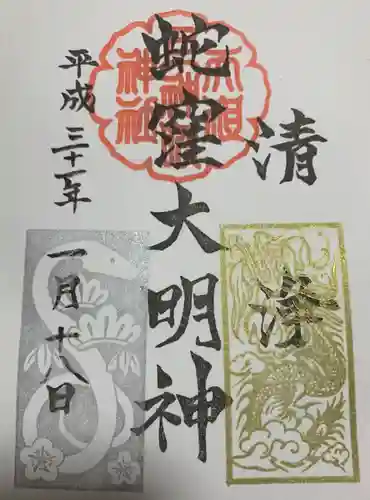 清浄
蛇窪大明神
平成三十一年
一月十八日